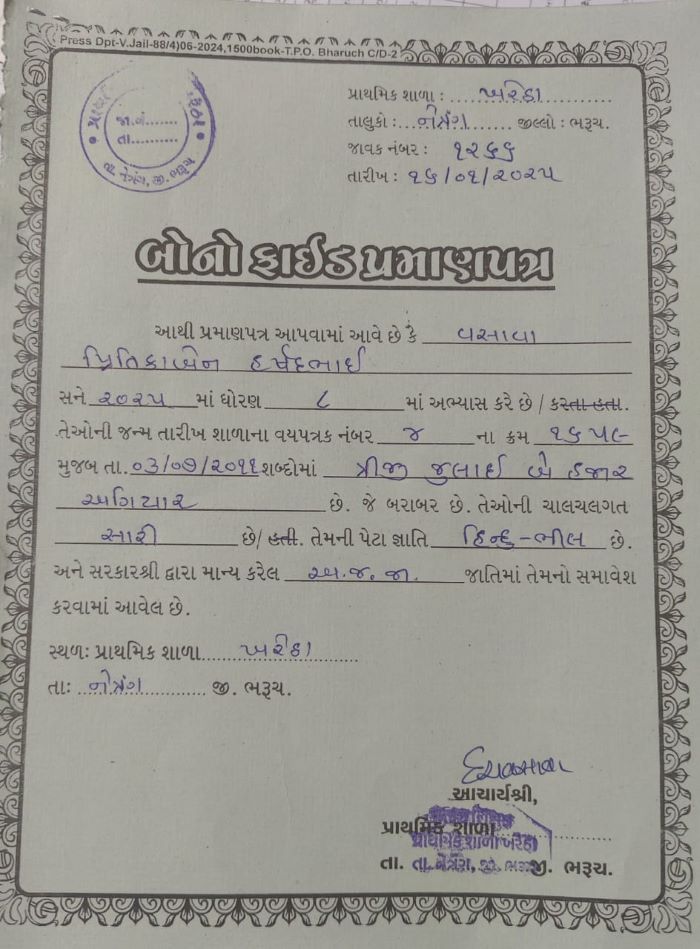 Press Dpt-V.Jail-88/4)06-2024,1500book-T.P.O. Bharuch C/D-2
જા.નં.......
તા..........
તા. નેત્રંગ, જી. ભરૂચ
પ્રાથમિક શાળા : ખરેઠા
તાલુકો : નેત્રંગ જીલ્લો : ભરૂચ.
જાવક નંબર : ૧૨૬૬
તારીખ : ૧૬/૦૧/૨૦૨૫
બોનોફાઈડ પ્રમાણપત્ર
આથી પ્રમાણપત્ર આપવામાં આવે છે કે વસાવા
પ્રિતિકાબેન હર્ષદભાઈ
સને ૨૦૨૫ માં ધોરણ ૮ માં અભ્યાસ કરે છે / કરતા હતા.
તેઓની જન્મ તારીખ શાળાના વયપત્રક નંબર ૪ ના ક્રમ ૧૬૫૯
મુજબ તા. ૦૩/૦૭/૨૦૧૧ શબ્દોમાં ત્રીજી જુલાઈ બે હજાર
અગિયાર છે. જે બરાબર છે. તેઓની ચાલચલગત
સારી છે/ હતી. તેમની પેટા જ્ઞાતિ હિન્દુ-ભીલ છે.
અને સરકારશ્રી દ્વારા માન્ય કરેલ અ.જ.જા. જાતિમાં તેમનો સમાવેશ
કરવામાં આવેલ છે.
સ્થળ: પ્રાથમિક શાળા ખરેઠા
તા: નેત્રંગ જી. ભરૂચ.
આચાર્યશ્રી,
પ્રાથમિક શાળા
પ્રાથમિક શાળા ખરેઠા
તા. તા. નેત્રંગ, જી. ભરૂચ જી. ભરૂચ.